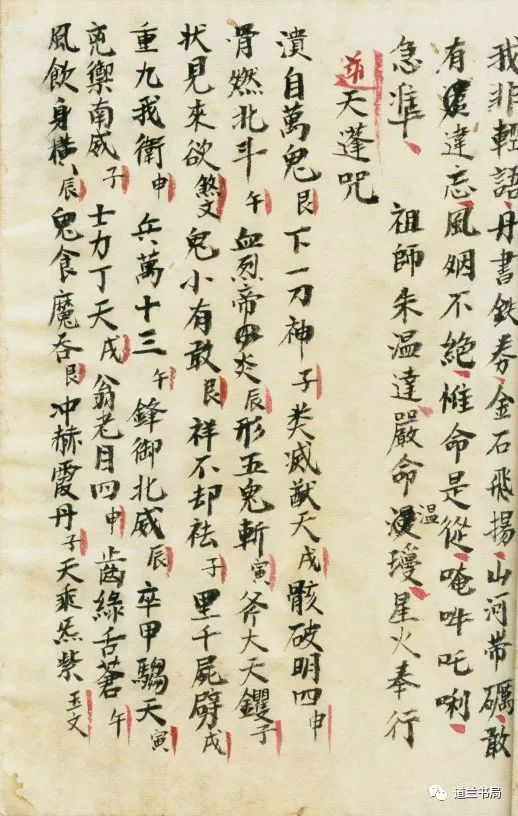 我非輕語丹書鉄券金石飛揚山河帶礪敢
有違忘風烟不絶惟命是從唵吽吒唎
急準
祖師朱温達嚴命温瓊星火奉行
逆天蓬咒
潰自萬鬼艮下一刀神子类滅獣天戌骸破明四申
骨燃北斗午血烈帝炎辰形五鬼斬寅斧大天钁子
状見來欲煞文鬼小有敢艮祥不却祛子里千屍劈戌
重九我衛申兵萬十三午鋒御北威辰卒甲騶天寅
兕禦南威子士力丁天戌翁老月四申齒綠舌蒼午
風飲身橫辰鬼食魔吞艮冲赫霞丹子天乘炁紫玉文
道兰书局